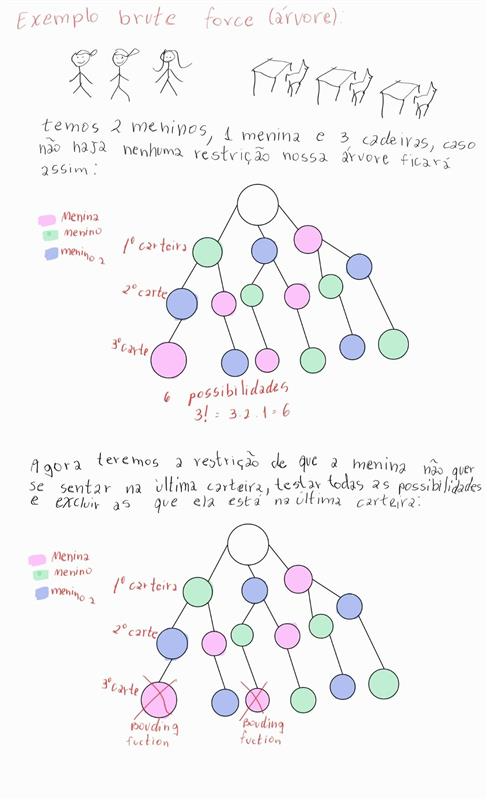 Exemplo brute force (árvore):
temos 2 meninos, 1 menina e 3 cadeiras, caso
não haja nenhuma restrição nossa árvore ficará
assim:
Menina
menino
menino 2
1º carteira
2º carte
3º carte
6 possibilidades
3! = 3.2.1 = 6
Agora teremos a restrição de que a menina não quer
se sentar na última carteira, testar todas as possibilidades
e excluir as que ela está na última carteira:
Menina
menino
menino 2
1º carteira
2º carte
3º carte
Bouding
fuction
Bouding
fuction